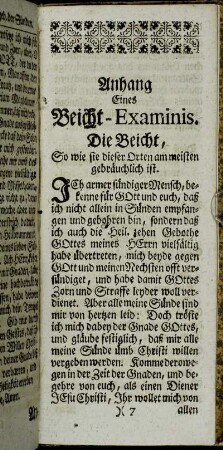 Anhang
Eines
Beicht-Examinis.
Die Beicht,
So wie sie dieser Orten am meisten
gebräuchlich ist.
ICh armer sündiger Mensch, be-
kenne für GOtt und euch, daß
ich nicht allein in Sünden empfan-
gen und gebohren bin, sondern daß
ich auch die Heil. zehen Gebothe
GOttes meines HErrn vielfältig
habe übertreten, mich beyde gegen
GOtt und meinen Nechsten offt ver-
sündiget, und habe damit GOttes
Zorn und Straffe leyder woll ver-
dienet. Aber alle meine Sünde sind
mir von hertzen leid: Doch tröste
ich mich dabey der Gnade GOttes,
und gläube festiglich, daß mir alle
meine Sünde umb Christi willen
vergeben werden. Komme derowe-
gen in der Zeit der Gnaden, und be-
gehre von euch, als einen Diener
JEsu Christi, Ihr wollet mich von
X 7
allen